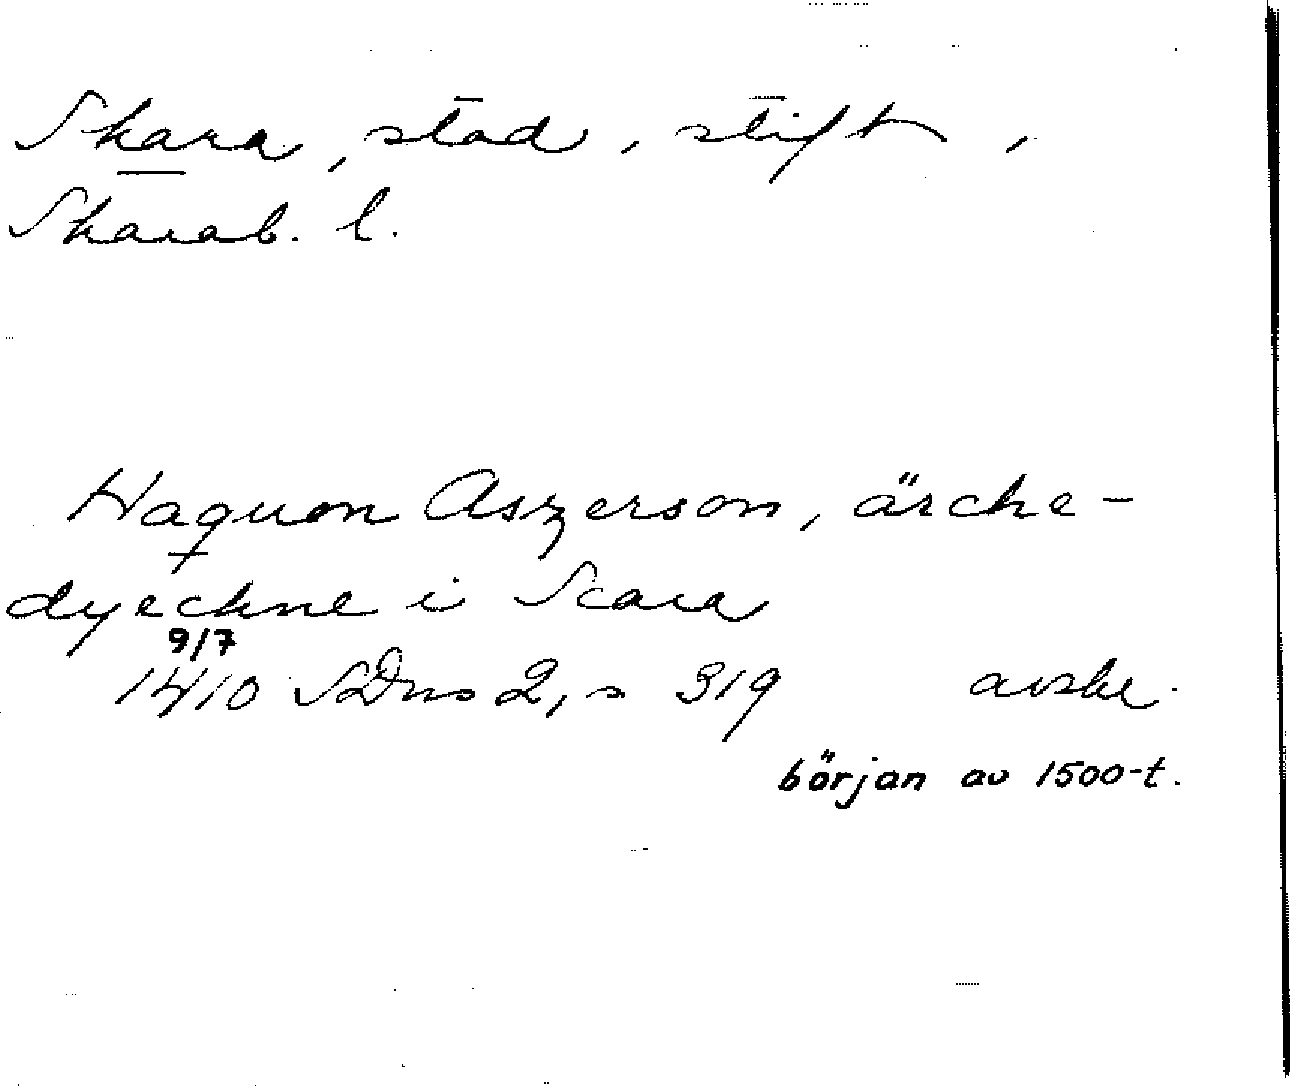 Skara, stad, stift,
Skarab. l.
Haquon Aszerson, ärche-
dyeckne i Scara
9/7
1410 SDns 2, s 319 avskr.
början av 1500-t.